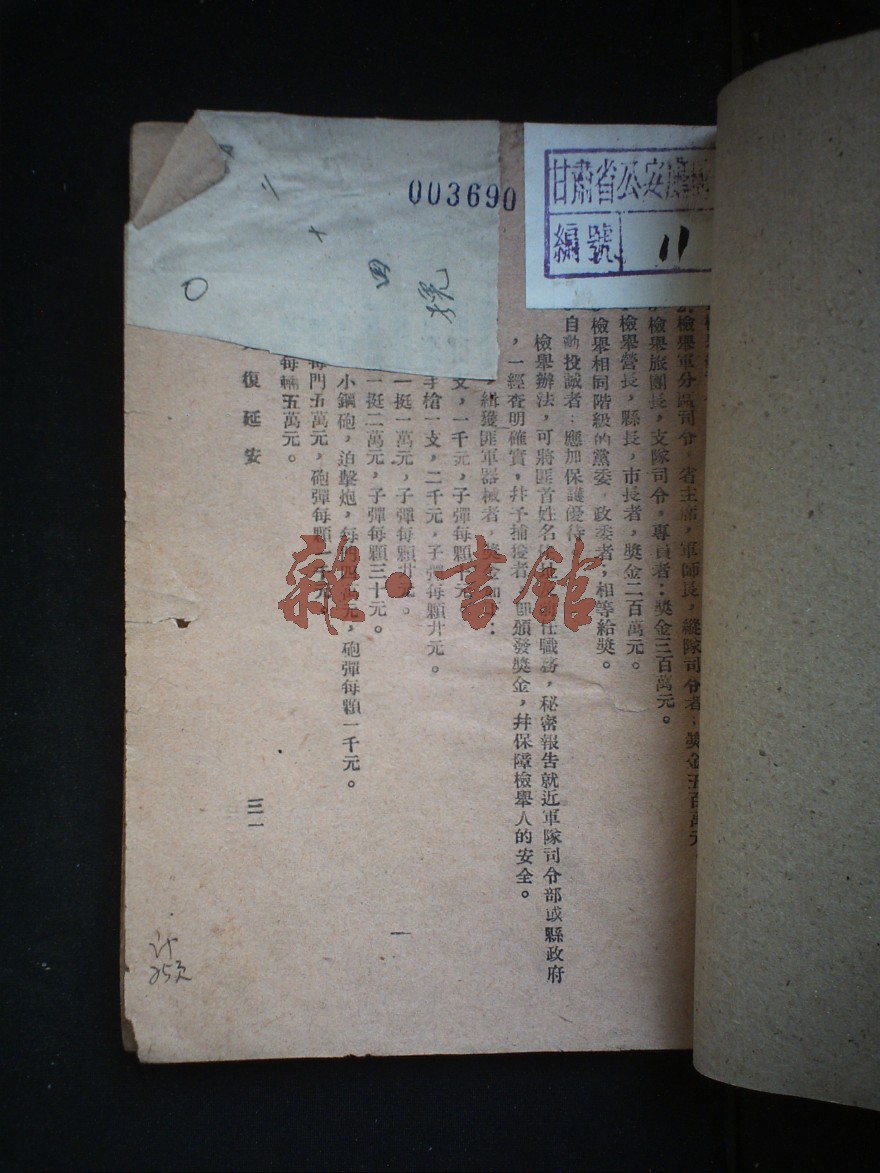 003690
甘肅省公安廳
編號 11
檢舉軍分區司令,省主席,軍師長,縱隊司令者;獎金五百萬元
檢舉旅團長,支隊司令,專員者;獎金三百萬元。
檢舉營長,縣長,市長者,獎金二百萬元。
檢舉相同階級的黨委,政委者;相等給獎。
自動投誠者;應加保護優待
檢舉辦法,可將匪首姓名 任職務,秘密報告就近軍隊司令部或縣政府
,一經查明確實,幷予捕獲者, 頒發獎金,幷保障檢舉人的安全。
緝獲匪軍器械者,獎金如 :
支,一千元,子彈每顆十元
手槍一支,二千元,子彈每顆廿元。
一挺一萬元,子彈每顆廿元。
一挺二萬元,子彈每顆三十元。
小鋼砲,迫擊炮,每門四萬元,砲彈每顆一千元。
每門五萬元,砲彈每顆一千元。
每輛五萬元。
復延安
三一
计
25页
雜·書館